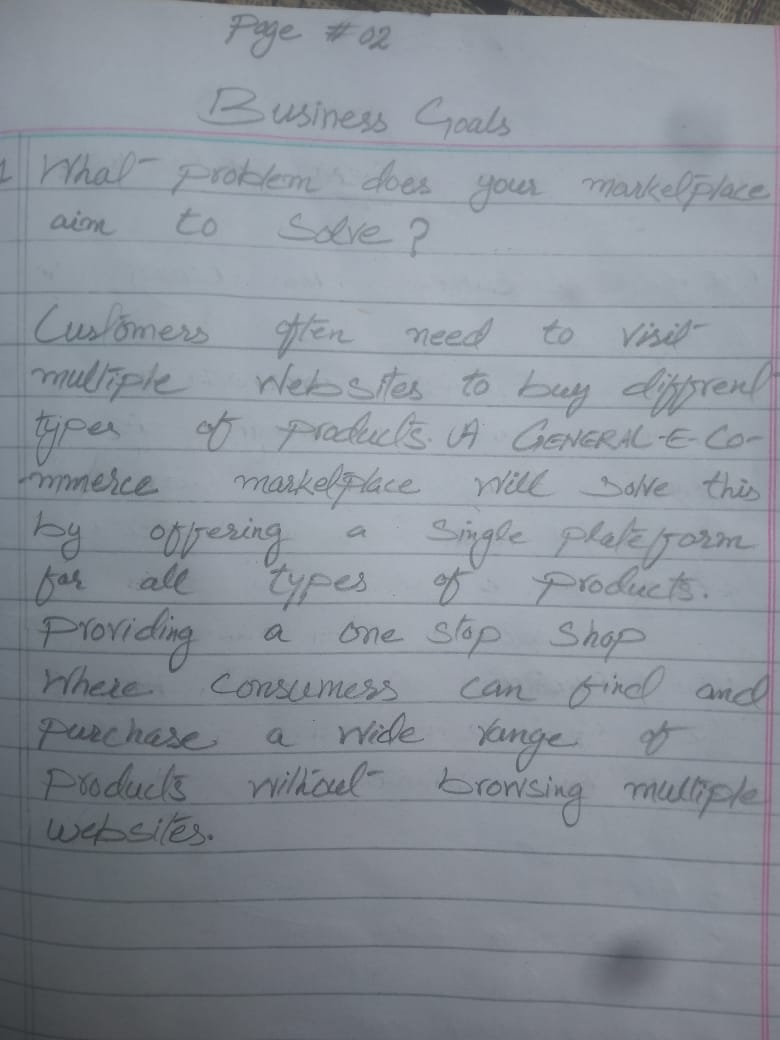 Page #02
Business Goals
1 What problem does your marketplace
aim to Solve?
Customers often need to visit
multiple Websites to buy diffrent
types of products. A GENERAL-E-Co-
mmerce marketplace will solve this
by offering a single plateform
for all types of products.
Providing a one stop shop
Where consumers can find and
purchase a wide range of
products without browsing multiple
websites.